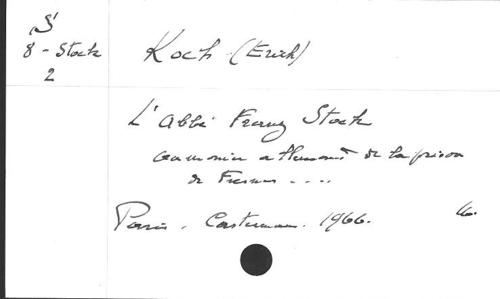 S
8 - Stock
2
Koch (Erich)
L'abbé Franz Stock
aumonier allemand de la prison
de Fresnes ....
Paris. Casterman. 1966.